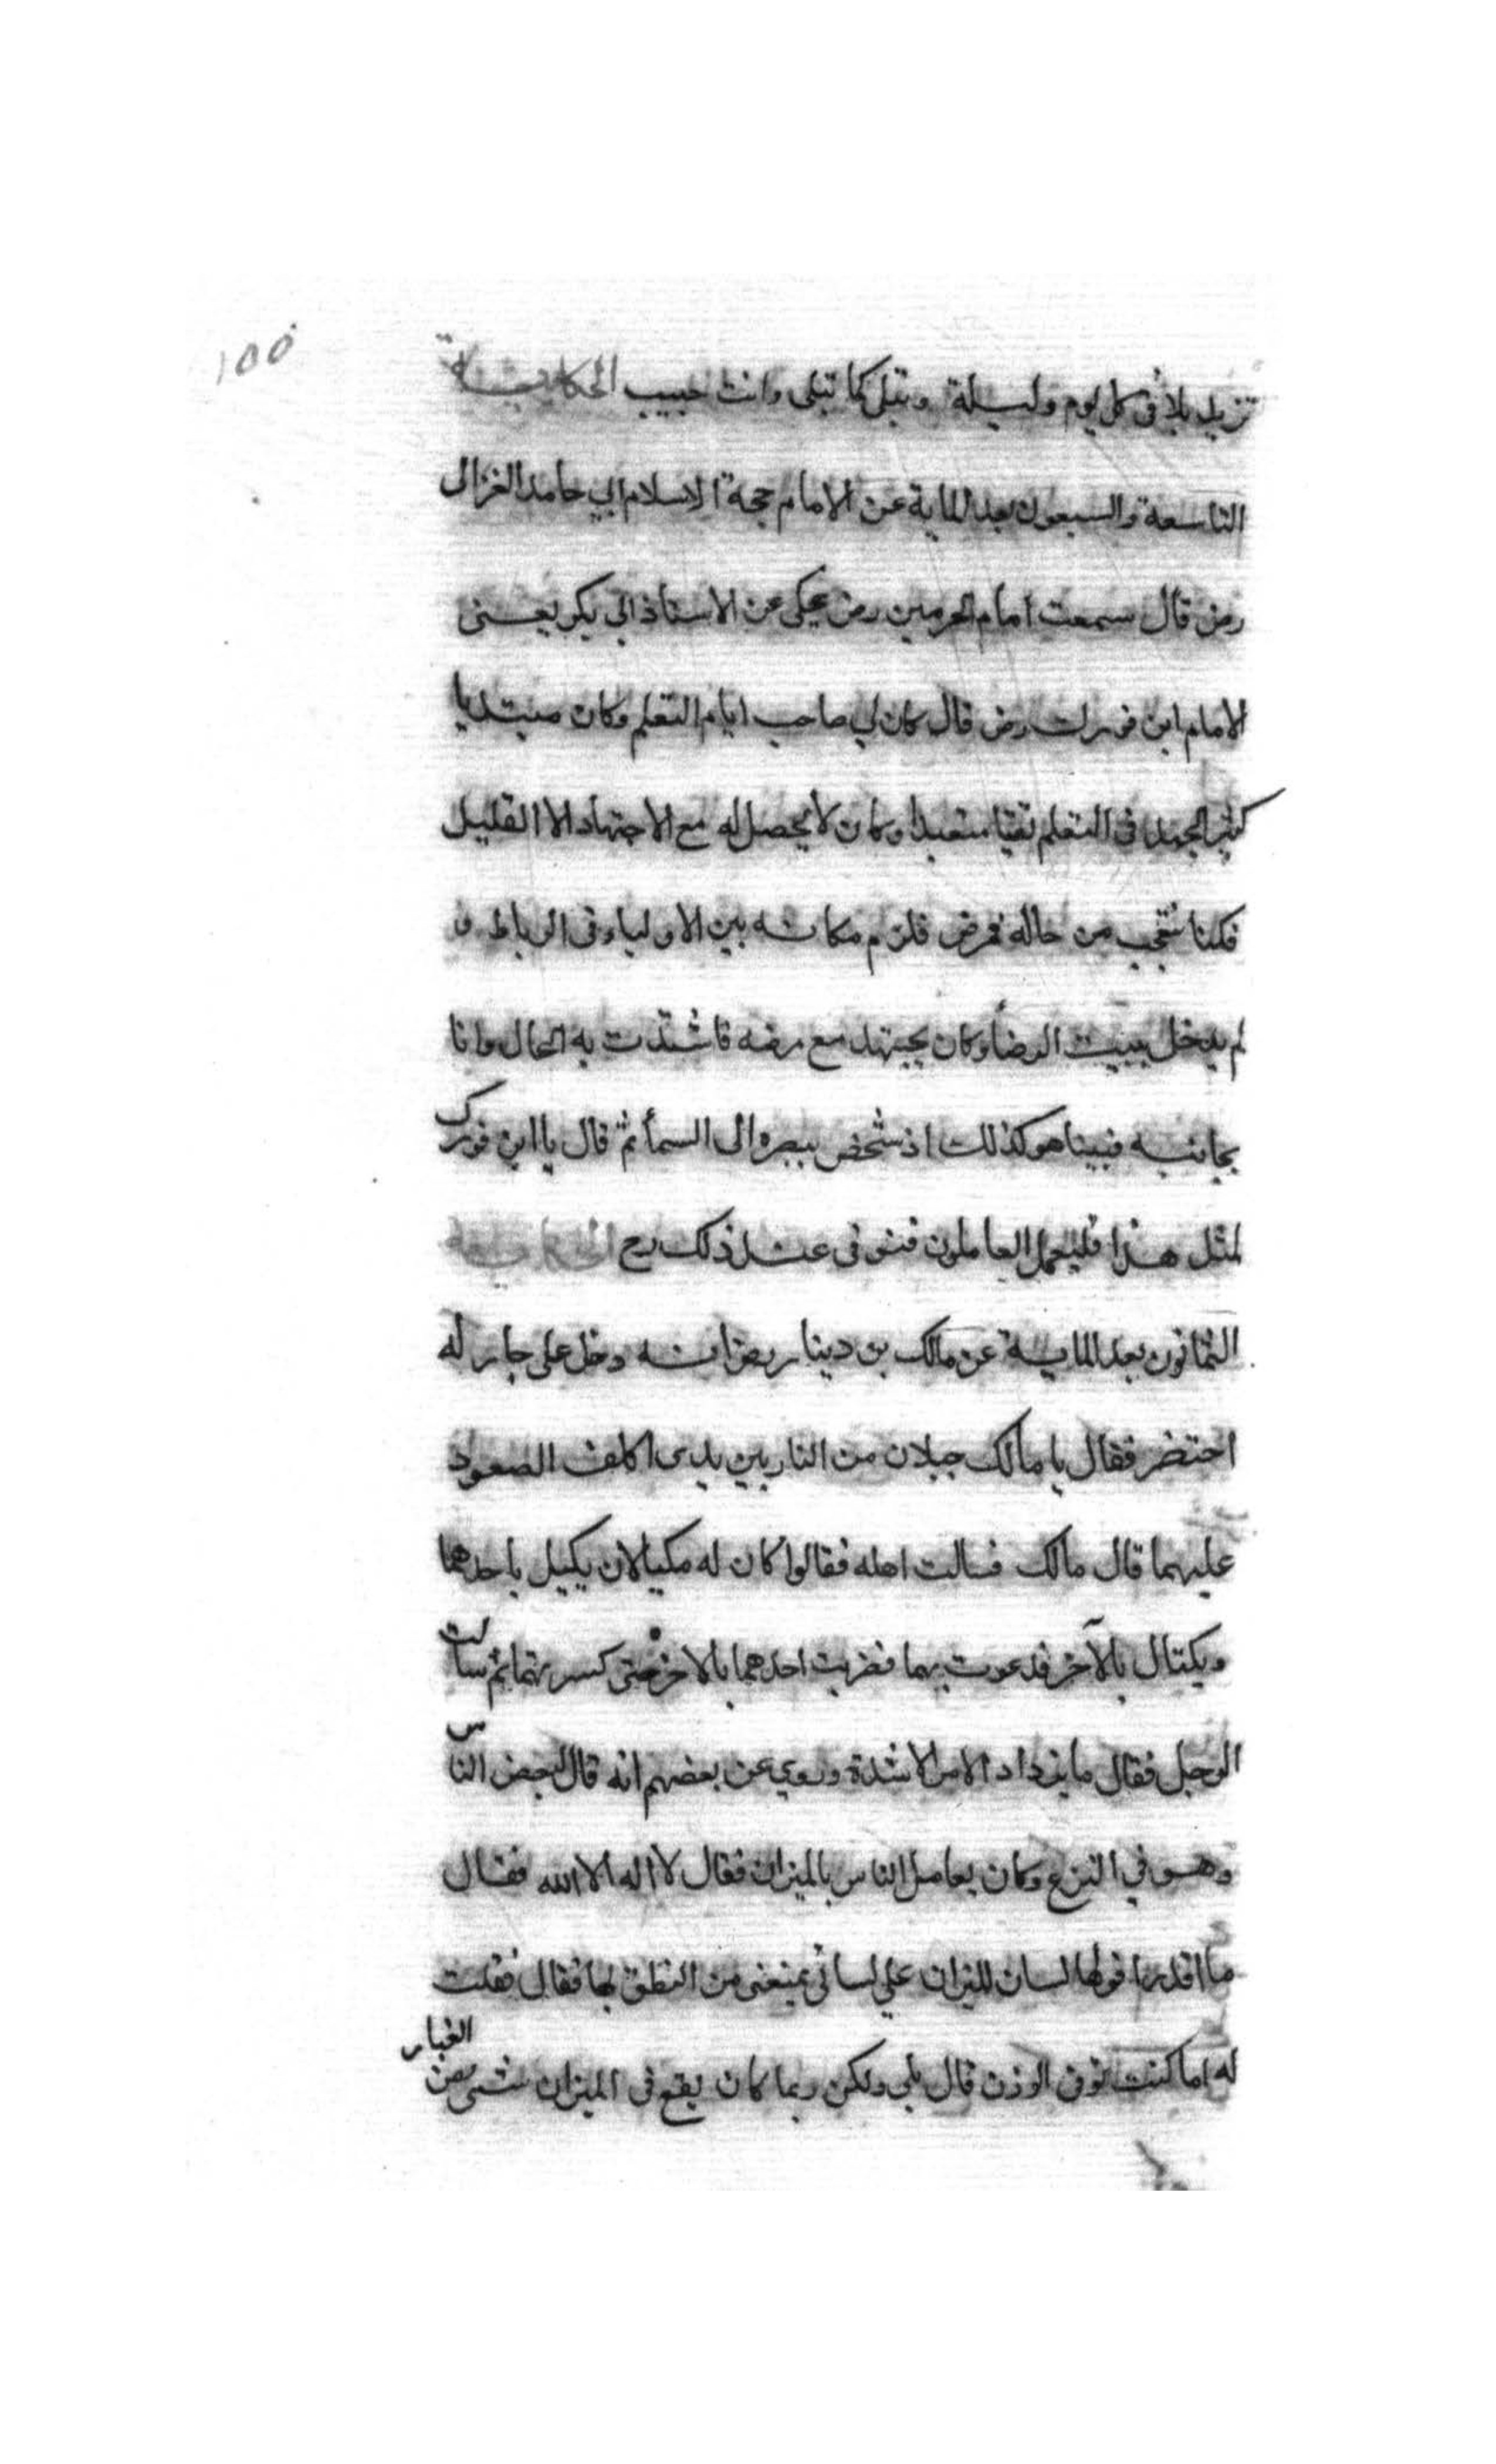 ١٥٥
تزيد بلا فى كل يوم وليلة وتبلى كما تبلى وانت حبيب الحكاية
التاسعة والسبعون بعد الماية عن الامام حجة الاسلام ابي حامد الغزالى
رض قال سمعت امام الحرمين رض يحكى عن الاستاذ ابى بكر يعنى
الامام ابن فورك رض قال كان لي صاحب ايام التعلم وكان مبتديا
كثير الجهد فى التعلم تقيا متعبدا وكان لا يحصل له مع الاجتهاد الا القليل
فكنا نتعجب من حاله فمرض فلزم مكانه بين الاولياء فى الرباط و
لم يدخل بيت المرضا وكان يجتهد مع مرضه فاشتدت به الحال وانا
بجانبه فبينا هو كذلك اذ شخص ببصره الى السمأ ثم قال يا ابن فورك
لمثل هذا فليعمل العاملون فتوفى عند ذلك رح الحكاية
الثمانون بعد الماية عن مالك بن دينار رض انه دخل على جار له
احتضر فقال يا مالك جبلان من النار بين يدى اكلف الصعود
عليهما قال مالك فسالت اهله فقالوا كان له مكيالان يكيل باحدهما
ويكتال بالآخر فدعوت بهما فضربت احدهما بالاخر حتى كسرتهما ثم سالت
الرجل فقال ما يزداد الامر الا شدة وروي عن بعضهم انه قال لبعض الناس
وهو في النزع وكان يعامل الناس بالميزان فقال لا اله الا الله فقال
ما اقدر اقولها لسان الميزان علي لسانى يمنعنى من النطق بها فقال فقلت
له اما كنت توفى الوزن قال بلي ولكن ربما كان يقع فى الميزان شى من الغبار